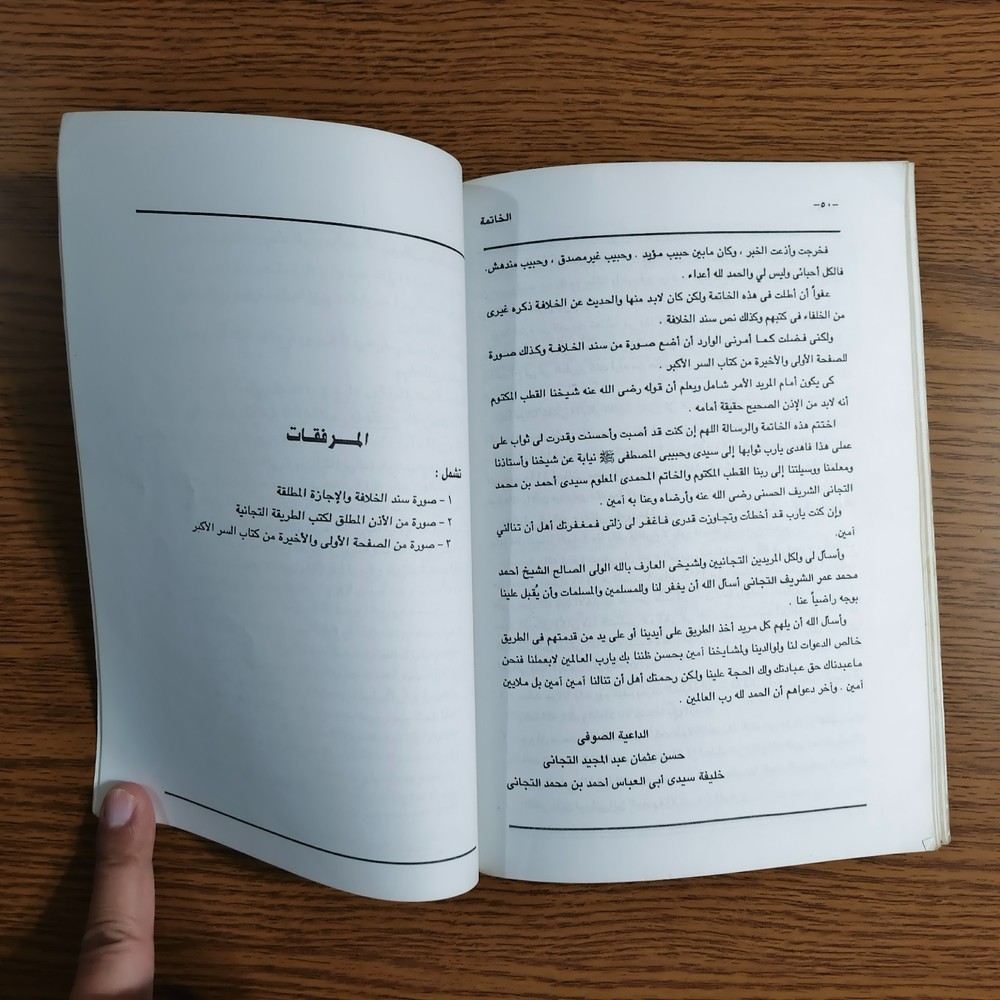 -٥٠-
الخاتمة
فخرجت وأذعت الخبر ، وكان مابين حبيب مؤيد . وحبيب غيرمصدق ، وحبيب مندهش.
فالكل أحبائى وليس لي والحمد لله أعداء .
عفواً أن أطلت فى هذه الخاتمة ولكن كان لابد منها والحديث عن الخلافة ذكره غيرى
من الخلفاء فى كتبهم وكذلك نص سند الخلافة .
ولكنى فضلت كما أمرنى الوارد أن أضع صورة من سند الخلافة وكذلك صورة
للصفحة الأولى والأخيرة من كتاب السر الأكبر .
كى يكون أمام المريد الأمر شامل ويعلم أن قوله رضى الله عنه شيخنا القطب المكتوم
أنه لابد من الإذن الصحيح حقيقة أمامه .
اختتم هذه الخاتمة والرسالة اللهم إن كنت قد أصبت وأحسنت وقدرت لى ثواب على
عملى هذا فاهدى يارب ثوابها إلى سيدى وحبيبى المصطفى ﷺ نيابة عن شيخنا وأستاذنا
ومعلمنا ووسيلتنا إلى ربنا القطب المكتوم والخاتم المحمدى المعلوم سيدى أحمد بن محمد
التجانى الشريف الحسنى رضى الله عنه وأرضاه وعنا به أمين .
وإن كنت يارب قد أخطأت وتجاوزت قدرى فاغفر لى زلتى فمغفرتك أهل أن تنالني
أمين.
وأسأل لى ولكل المريدين التجانيين ولشيخى العارف بالله الولى الصالح الشيخ أحمد
محمد عمر الشريف التجانى أسأل الله أن يغفر لنا وللمسلمين والمسلمات وأن يُقبل علينا
بوجه راضياً عنا .
وأسأل الله أن يلهم كل مريد أخذ الطريق على أيدينا أو على يد من قدمتهم فى الطريق
خالص الدعوات لنا ولوالدينا ولمشايخنا أمين بحسن ظننا بك يارب العالمين لابعملنا فنحن
ماعبدناك حق عبادتك ولك الحجة علينا ولكن رحمتك أهل أن تنالنا أمين أمين بل ملايين
أمين . وأخر دعواهم أن الحمد لله رب العالمين .
الداعية الصوفى
حسن عثمان عبد المجيد التجانى
خليفة سيدى أبى العباس أحمد بن محمد التجانى
المـرفقـات
تشمل :
١ - صورة سند الخلافة والإجازة المطلقة
٢ - صورة من الأذن المطلق لكتب الطريقة التجانية
٣ - صورة من الصفحة الأولى والأخيرة من كتاب السر الأكبر